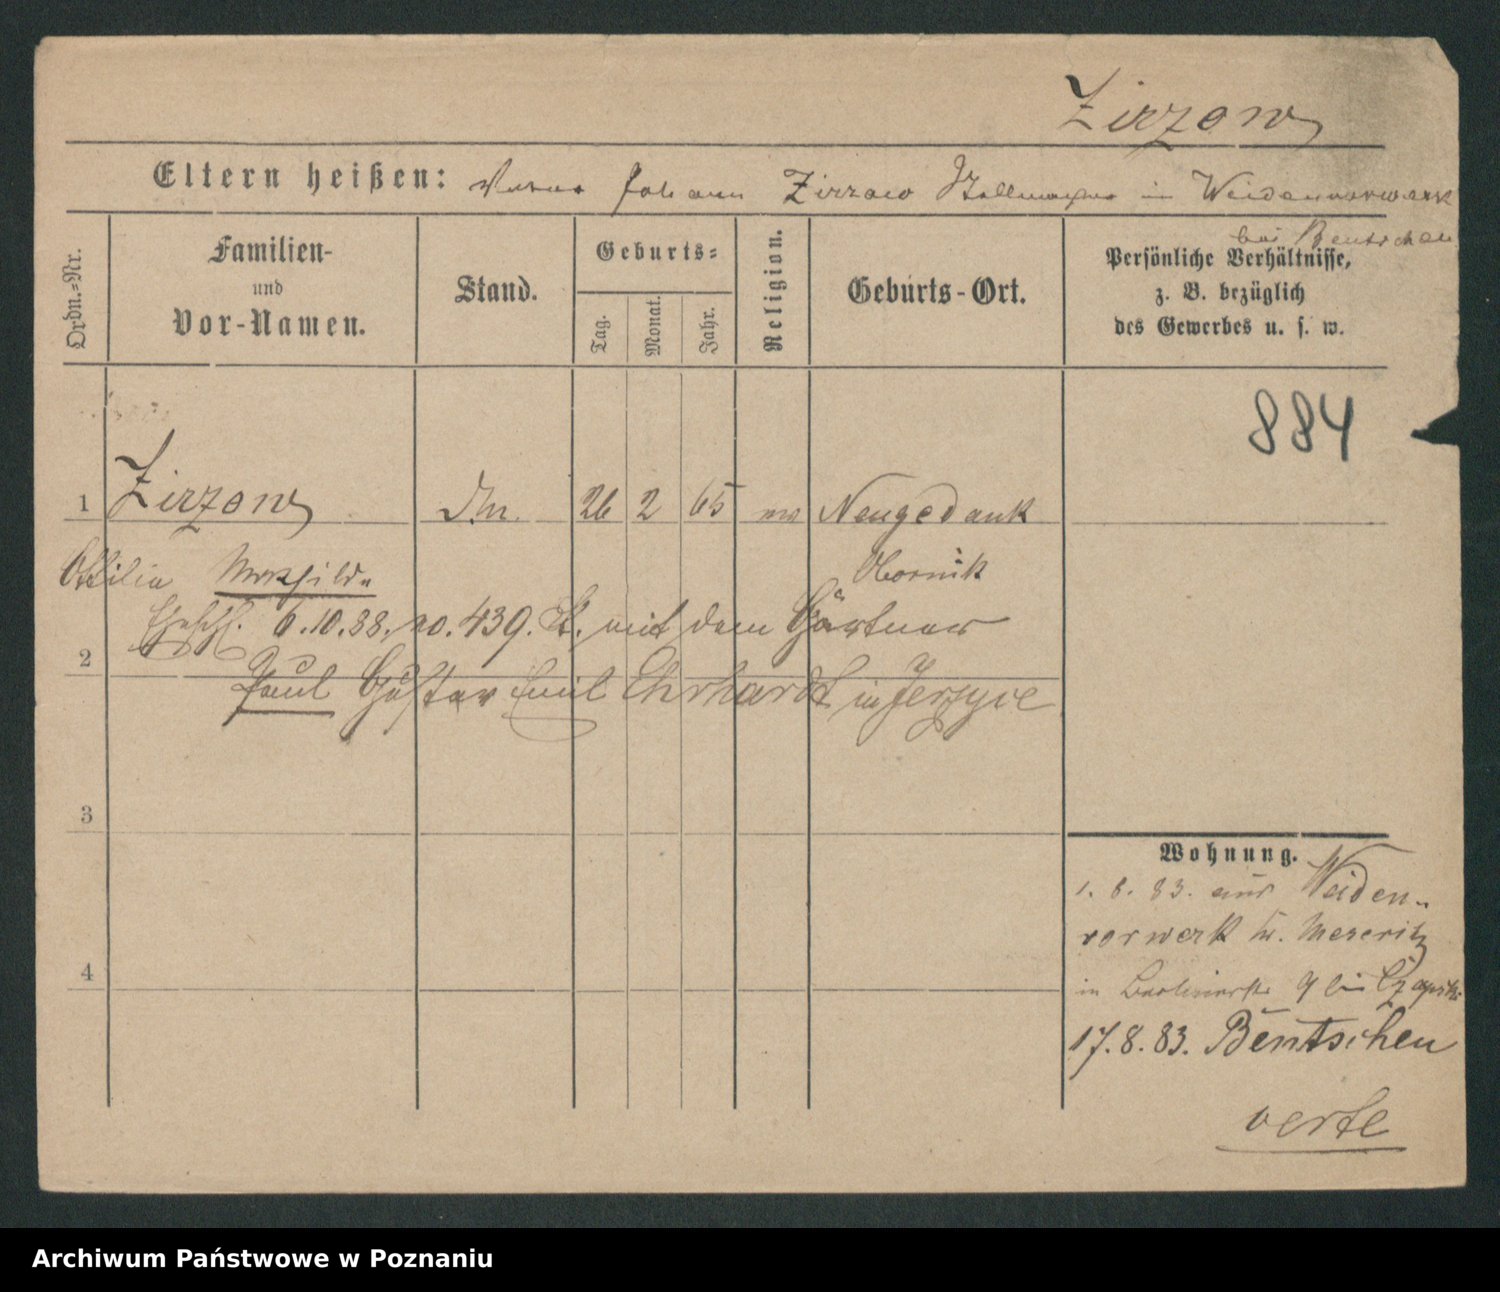 Zirzow
Eltern heißen: Vater Johann Zirzow Stellmacher in Weidenvorwerk
bei Bentschen
Ordn.-Nr.
Familien-
und
Vor-Namen.
Stand.
Geburts-
Tag.
Monat.
Jahr.
Religion.
Geburts-Ort.
Persönliche Verhältnisse,
z. B. bezüglich
des Gewerbes u. s. w.
884
1 Zirzow 26 2 65 Neugedank
Ottilie Mathilde Obornik
Eheschl. 6.10.88. no. 439. mit dem Gärtner
2
Paul Gustav Emil Ehrhardt in Jerzyce
3
4
Wohnung.
1. 8. 83. aus Weiden-
vorwerk Kr. Meseritz
in Berlinerstr. 9 bei
17.8.83. Bentschen
verte
Archiwum Państwowe w Poznaniu